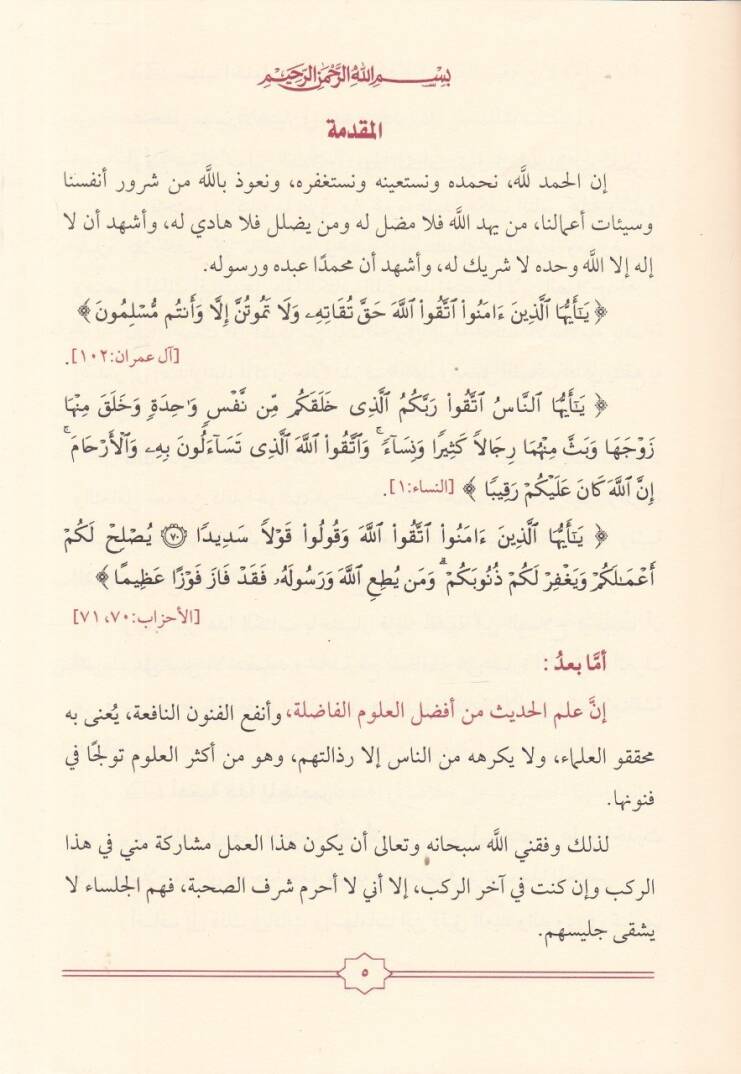 بِسْمِ اللَّهِ الرَّحْمَنِ الرَّحِيمِ
المقدمة
إن الحمد للَّه، نحمده ونستعينه ونستغفره، ونعوذ باللَّه من شرور أنفسنا
وسيئات أعمالنا، من يهد اللَّه فلا مضل له ومن يضلل فلا هادي له، وأشهد أن لا
إله إلا اللَّه وحده لا شريك له، وأشهد أن محمدًا عبده ورسوله.
﴿ يَٰٓأَيُّهَا ٱلَّذِينَ ءَامَنُوا۟ ٱتَّقُوا۟ ٱللَّهَ حَقَّ تُقَاتِهِۦ وَلَا تَمُوتُنَّ إِلَّا وَأَنتُم مُّسْلِمُونَ ﴾
[آل عمران:١٠٢].
﴿ يَٰٓأَيُّهَا ٱلنَّاسُ ٱتَّقُوا۟ رَبَّكُمُ ٱلَّذِى خَلَقَكُم مِّن نَّفْسٍ وَٰحِدَةٍ وَخَلَقَ مِنْهَا
زَوْجَهَا وَبَثَّ مِنْهُمَا رِجَالًا كَثِيرًا وَنِسَآءً ۚ وَٱتَّقُوا۟ ٱللَّهَ ٱلَّذِى تَسَآءَلُونَ بِهِۦ وَٱلْأَرْحَامَ ۚ
إِنَّ ٱللَّهَ كَانَ عَلَيْكُمْ رَقِيبًا ﴾ [النساء:١].
﴿ يَٰٓأَيُّهَا ٱلَّذِينَ ءَامَنُوا۟ ٱتَّقُوا۟ ٱللَّهَ وَقُولُوا۟ قَوْلًا سَدِيدًا ٧٠ يُصْلِحْ لَكُمْ
أَعْمَٰلَكُمْ وَيَغْفِرْ لَكُمْ ذُنُوبَكُمْ ۗ وَمَن يُطِعِ ٱللَّهَ وَرَسُولَهُۥ فَقَدْ فَازَ فَوْزًا عَظِيمًا ﴾
[الأحزاب:٧٠، ٧١]
أمَّا بعدُ :
إنَّ علم الحديث من أفضل العلوم الفاضلة، وأنفع الفنون النافعة، يُعنى به
محققو العلماء، ولا يكرهه من الناس إلا رذالتهم، وهو من أكثر العلوم تولجًا في
فنونها.
لذلك وفقني اللَّه سبحانه وتعالى أن يكون هذا العمل مشاركة مني في هذا
الركب وإن كنت في آخر الركب، إلا أني لا أحرم شرف الصحبة، فهم الجلساء لا
يشقى جليسهم.
٥